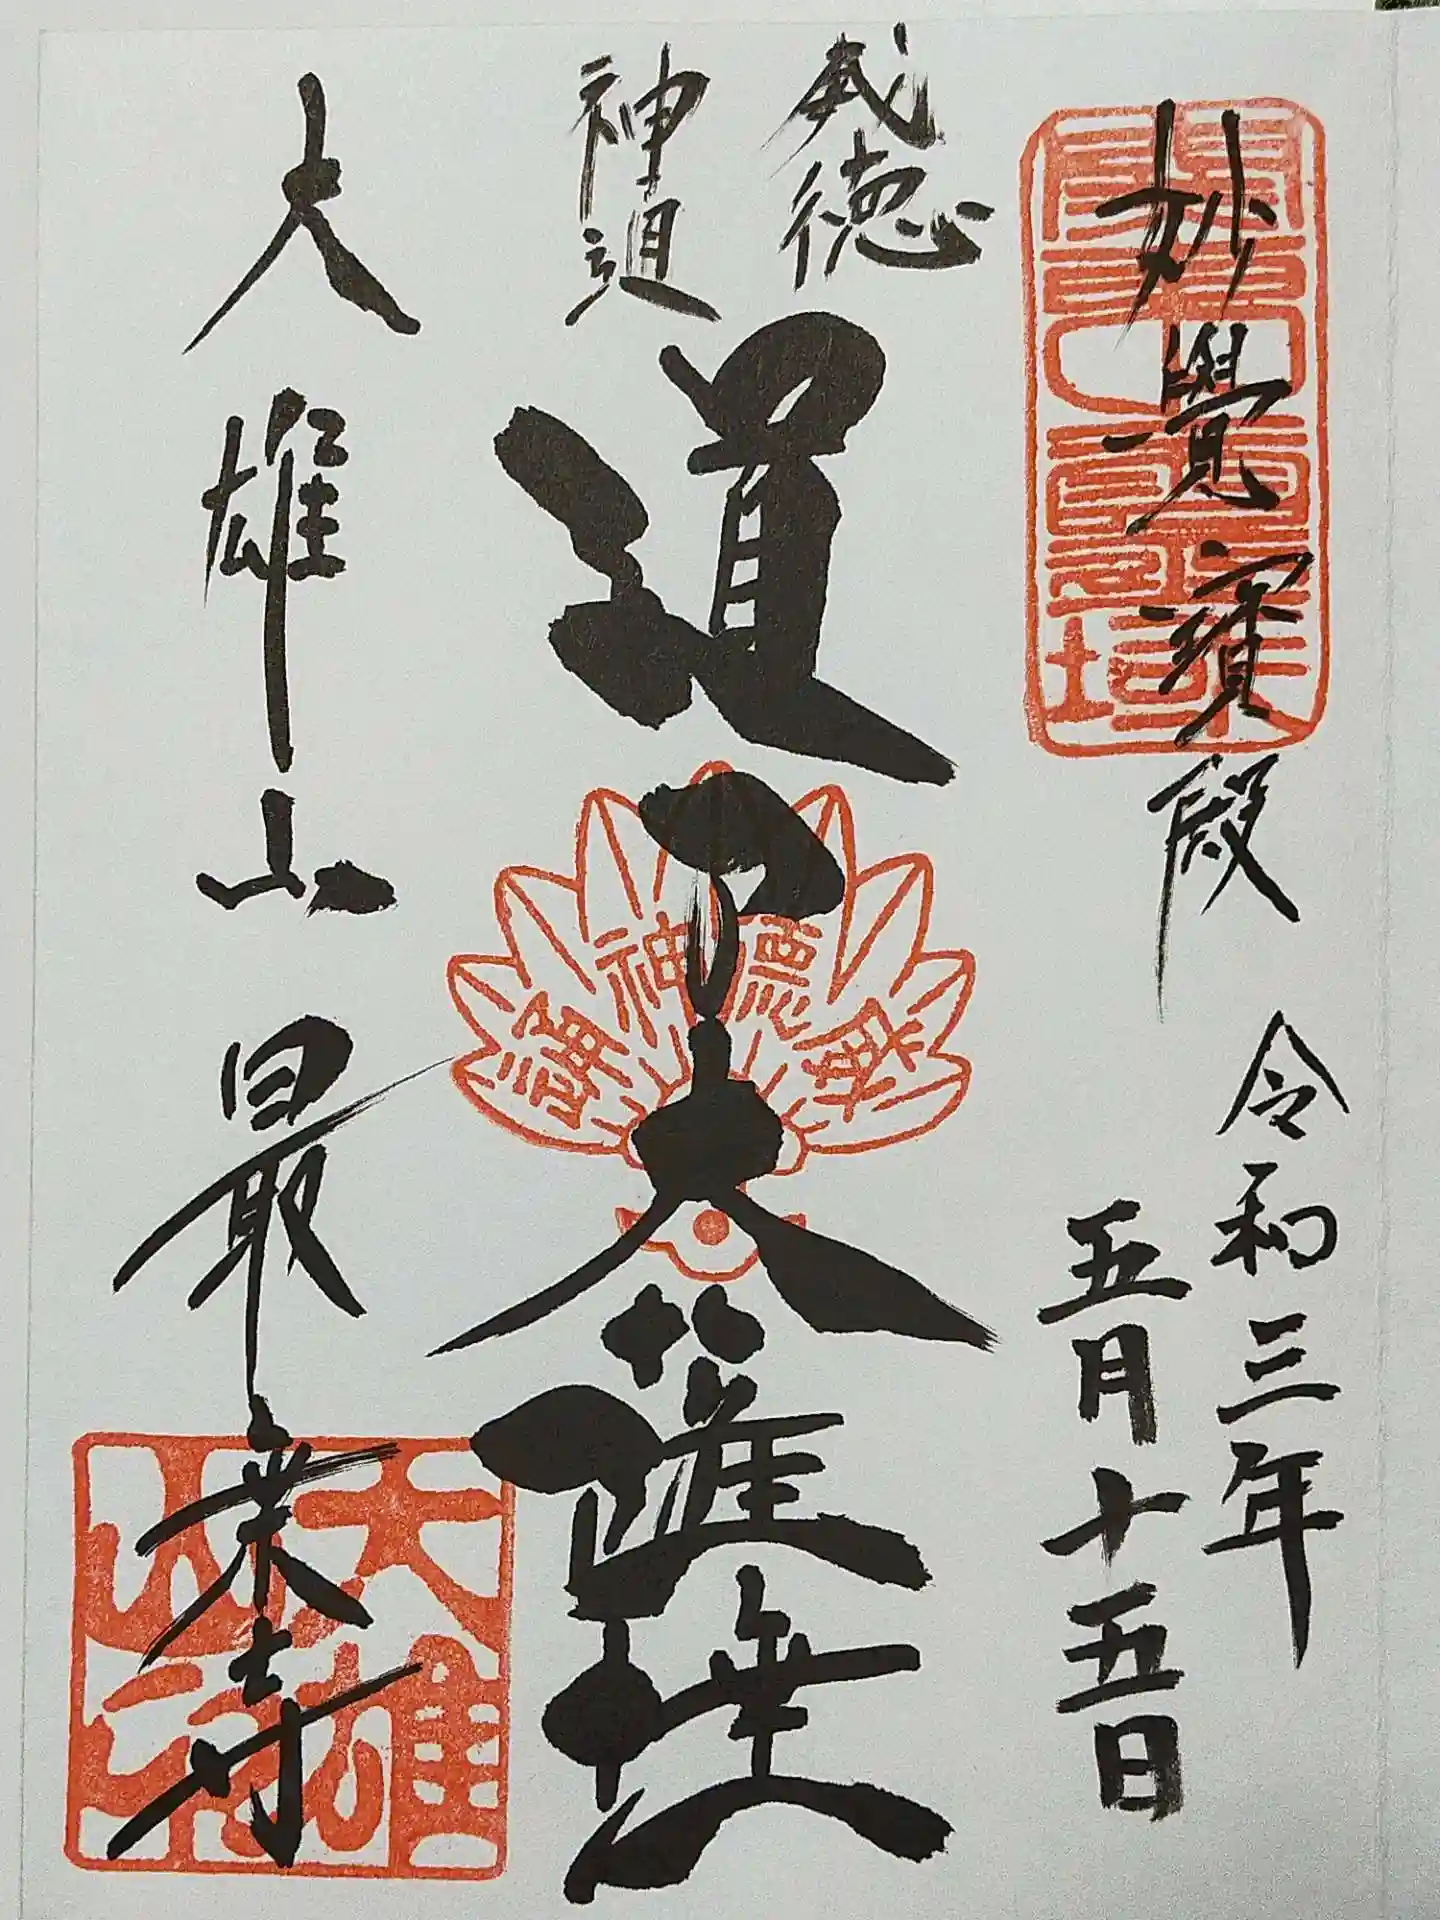 妙覺寳殿
令和三年
五月十五日
威徳
神通
道了大薩埵
威德神通
大雄山最乗寺
大雄山印